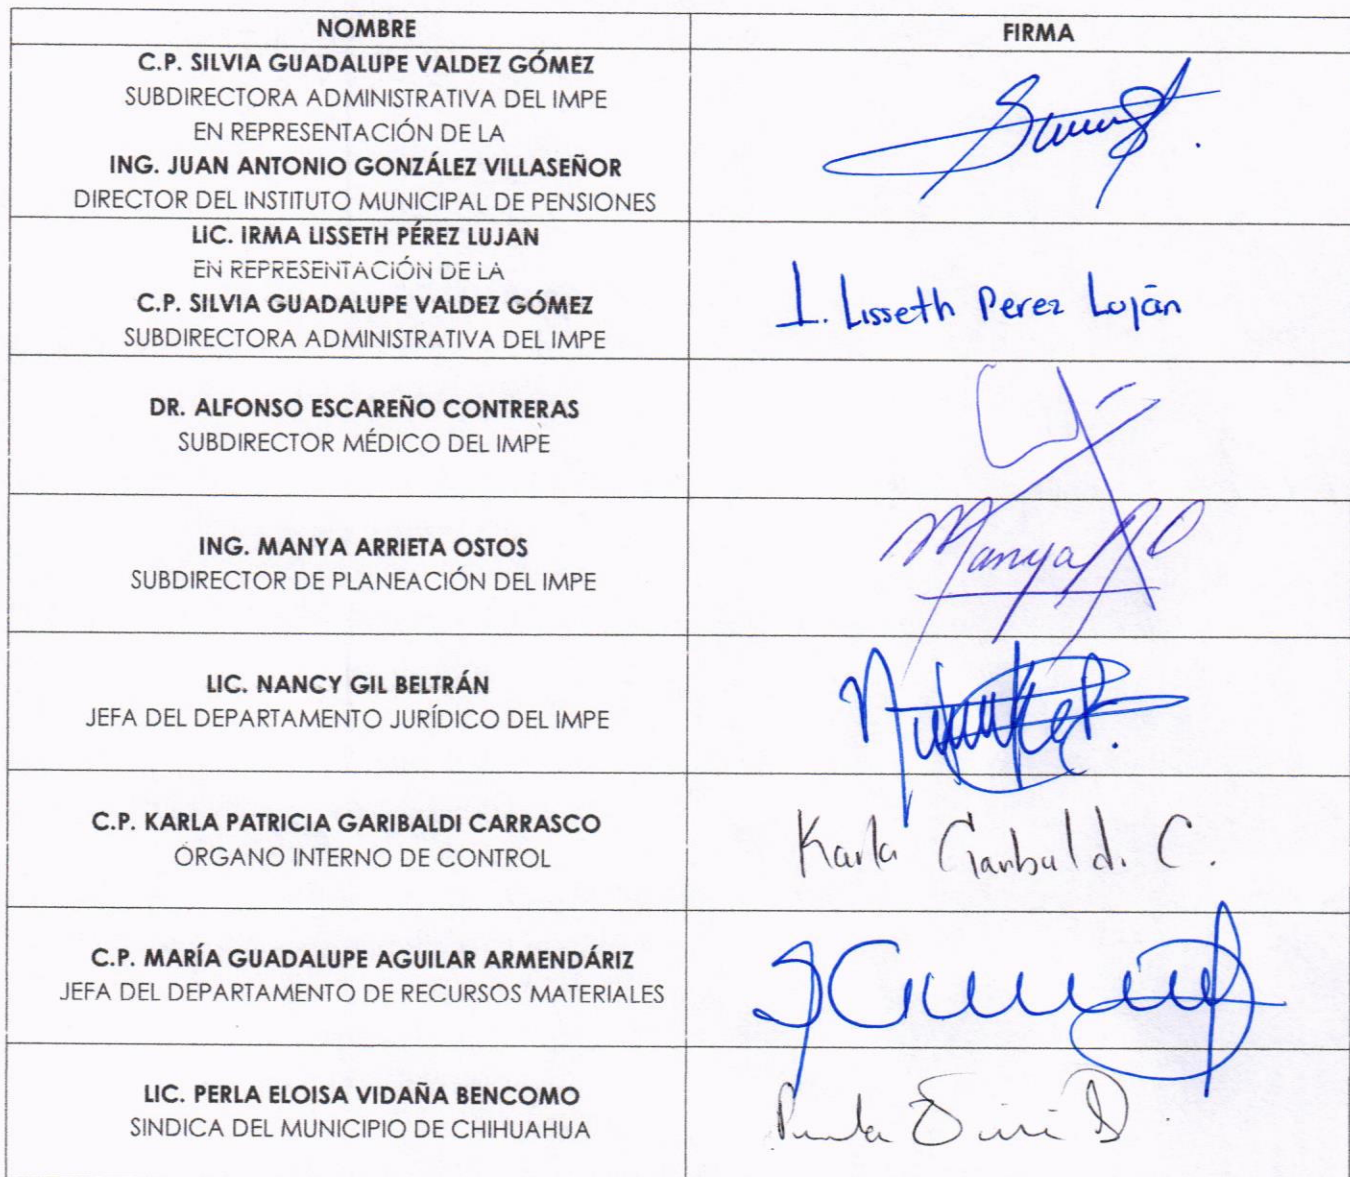 NOMBRE FIRMA
C.P. SILVIA GUADALUPE VALDEZ GÓMEZ
SUBDIRECTORA ADMINISTRATIVA DEL IMPE
EN REPRESENTACIÓN DE LA
ING. JUAN ANTONIO GONZÁLEZ VILLASEÑOR
DIRECTOR DEL INSTITUTO MUNICIPAL DE PENSIONES
LIC. IRMA LISSETH PÉREZ LUJAN
EN REPRESENTACIÓN DE LA
C.P. SILVIA GUADALUPE VALDEZ GÓMEZ
SUBDIRECTORA ADMINISTRATIVA DEL IMPE
I. Lisseth Perez Luján
DR. ALFONSO ESCAREÑO CONTRERAS
SUBDIRECTOR MÉDICO DEL IMPE
ING. MANYA ARRIETA OSTOS
SUBDIRECTOR DE PLANEACIÓN DEL IMPE
Manya
LIC. NANCY GIL BELTRÁN
JEFA DEL DEPARTAMENTO JURÍDICO DEL IMPE
C.P. KARLA PATRICIA GARIBALDI CARRASCO
ÓRGANO INTERNO DE CONTROL
Karla Garibaldi C.
C.P. MARÍA GUADALUPE AGUILAR ARMENDÁRIZ
JEFA DEL DEPARTAMENTO DE RECURSOS MATERIALES
LIC. PERLA ELOISA VIDAÑA BENCOMO
SINDICA DEL MUNICIPIO DE CHIHUAHUA